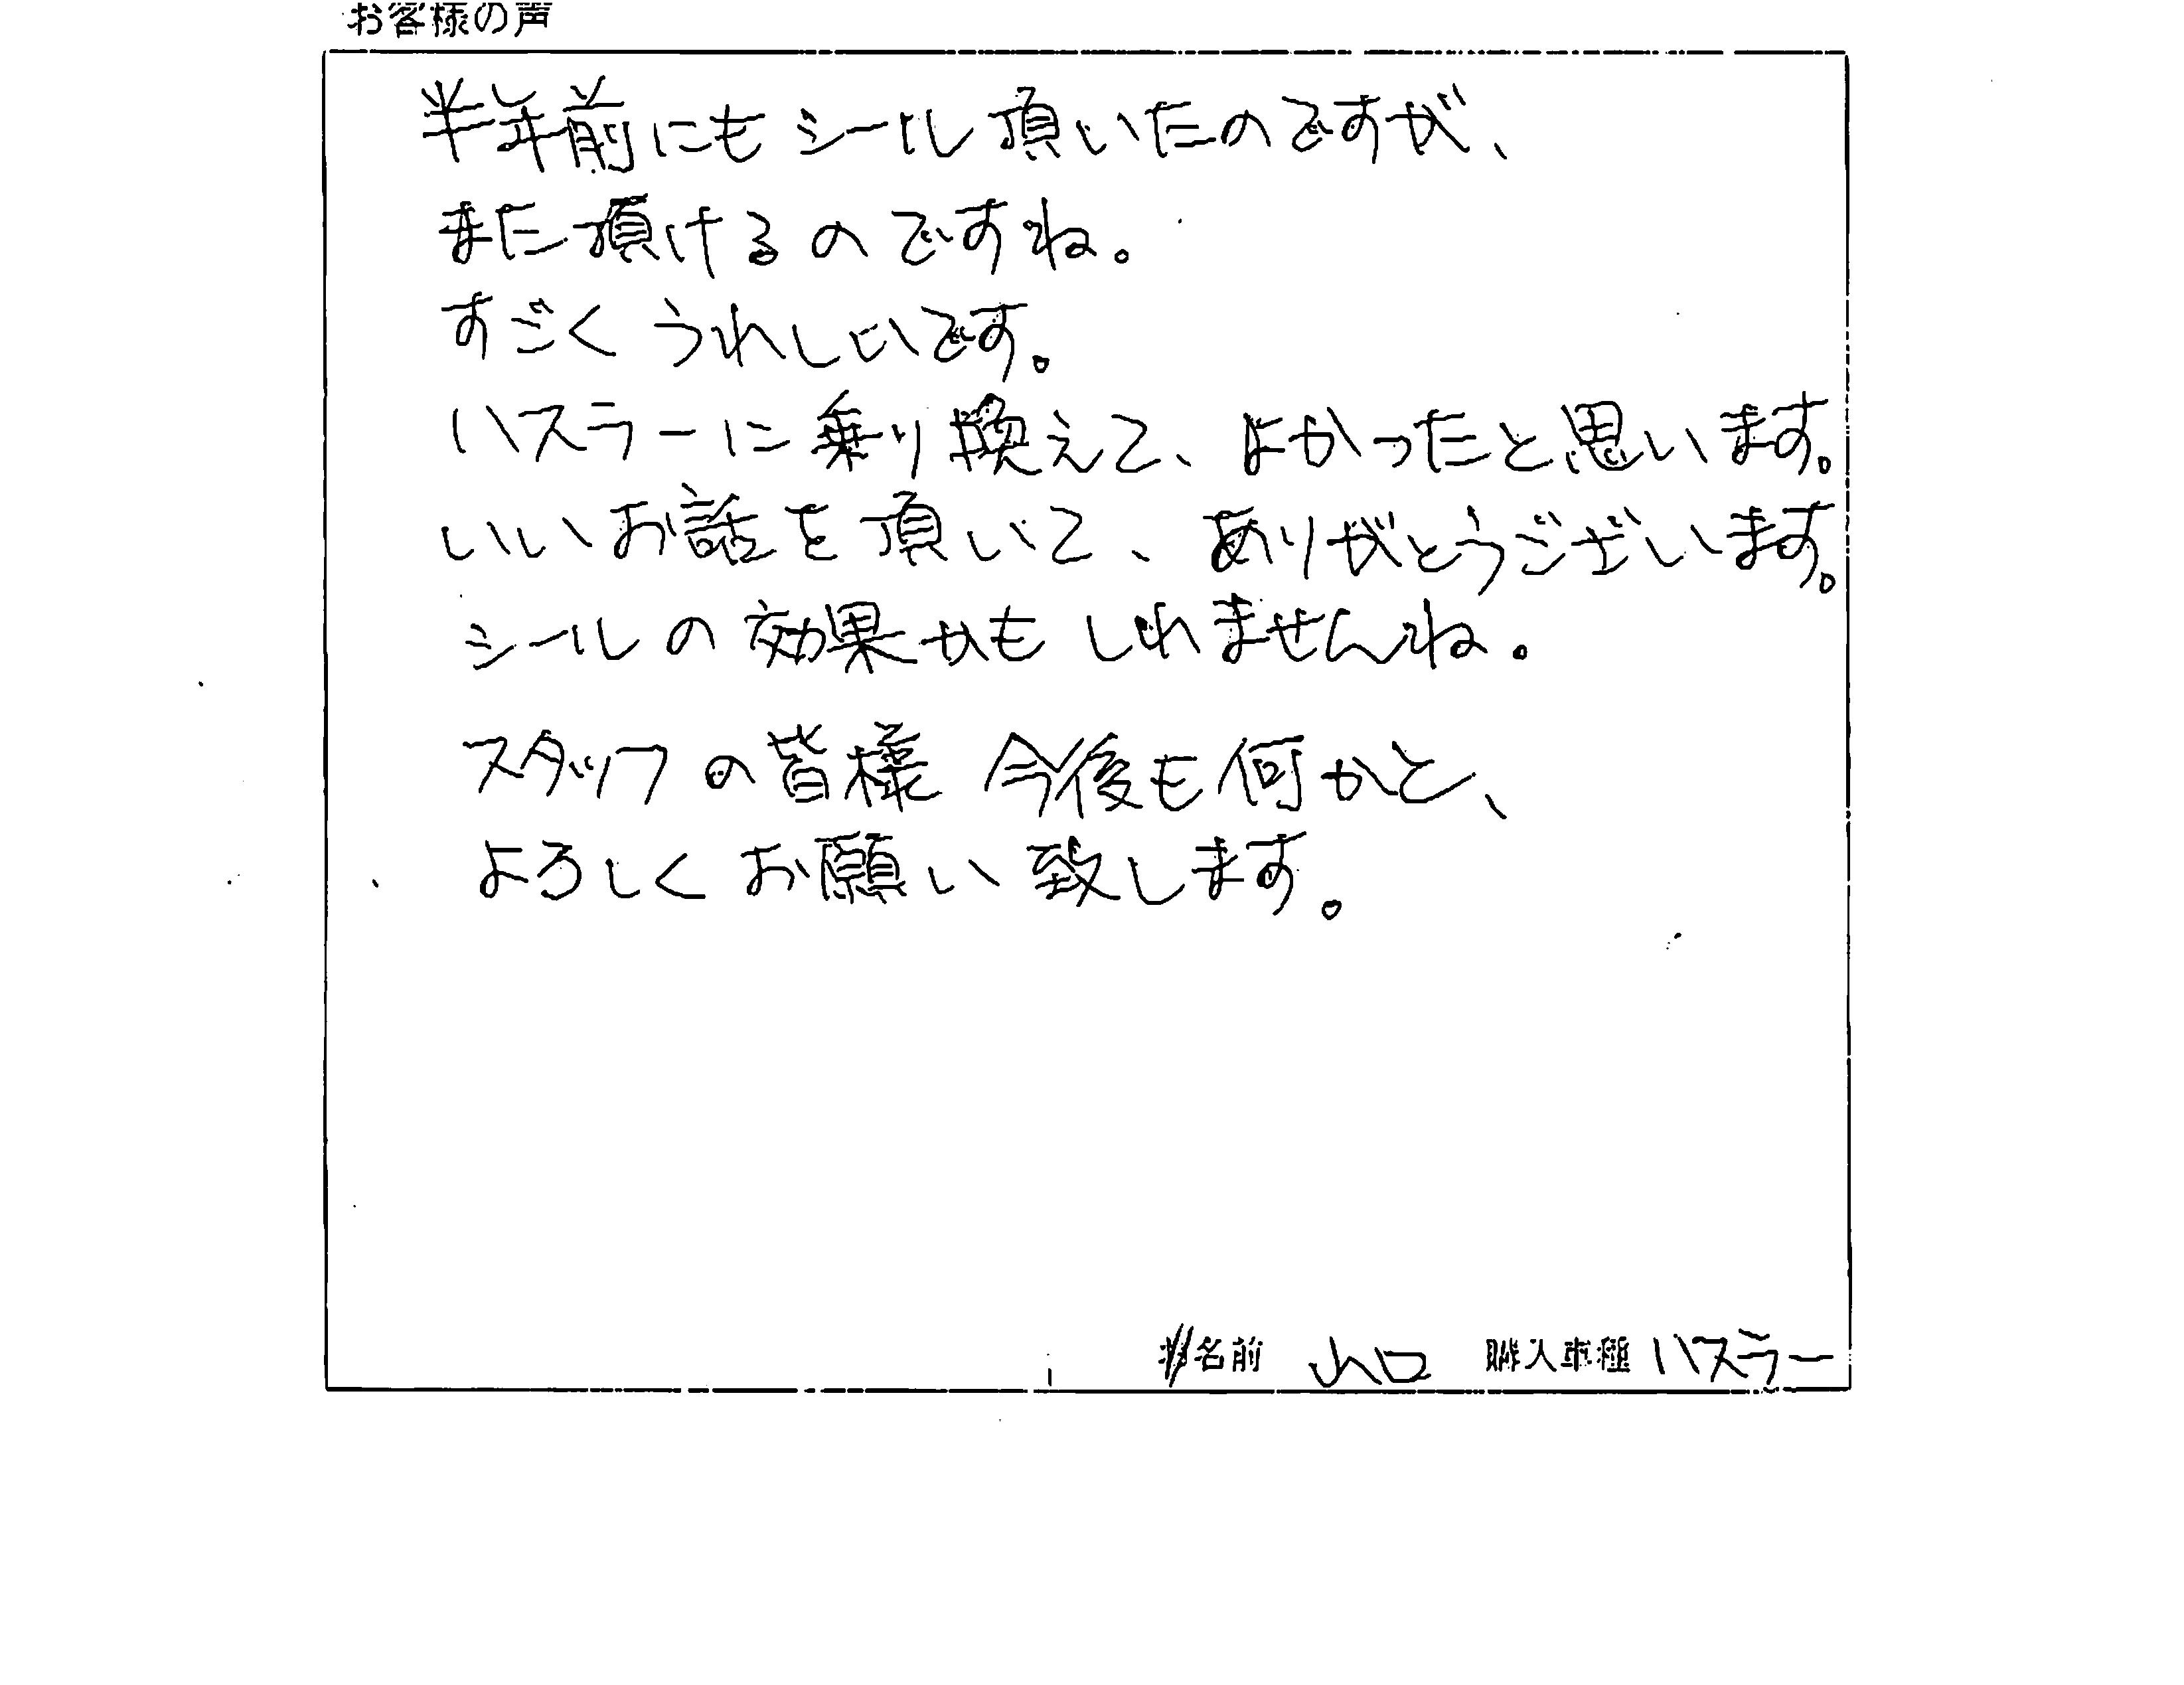 お客様の声
半年前にもシール頂いたのですが、
また頂けるのですね。
すごくうれしいです。
ハスラーに乗り換えて、よかったと思います。
いいお話を頂いて、ありがとうございます。
シールの効果かもしれませんね。
スタッフの皆様 今後も何かと、
よろしくお願い致します。
お名前 山口 購入車種 ハスラー